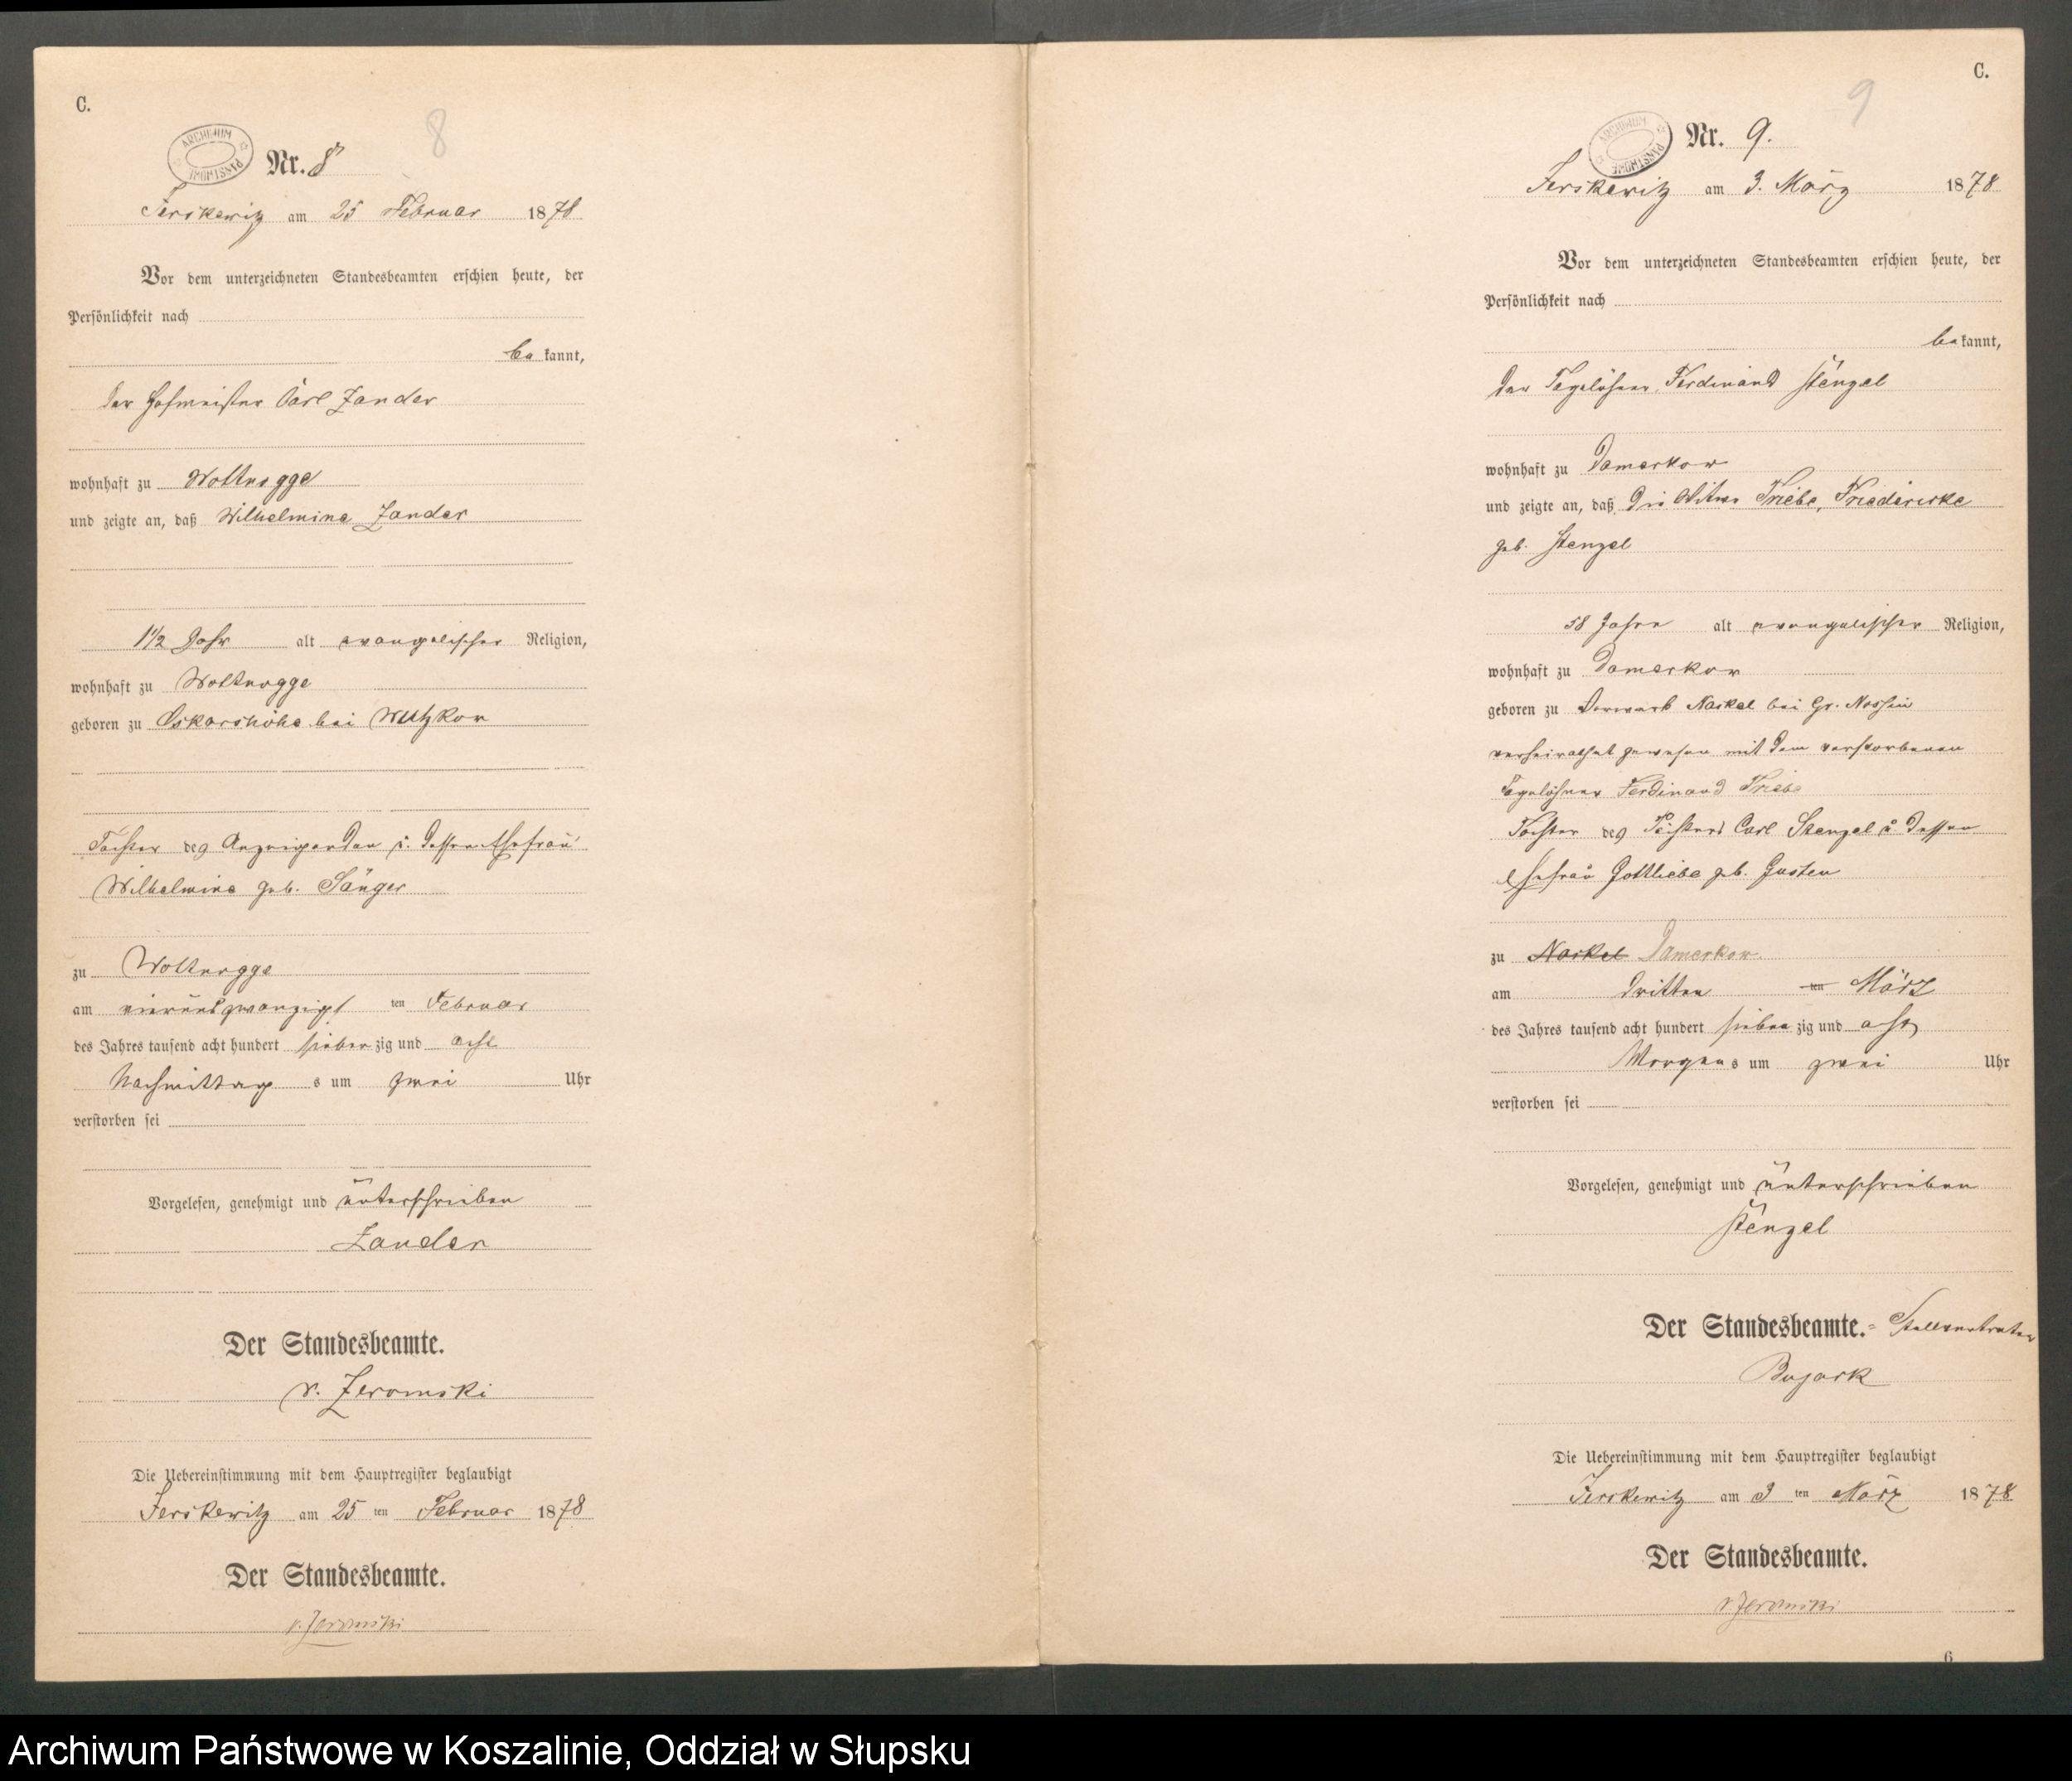 C.
8
ARCHIWUM PAŃSTWOWE
Nr. 8
Jerskewitz am 25 Februar 1878
Vor dem unterzeichneten Standesbeamten erschien heute, der
Persönlichkeit nach
be kannt,
der Hofmeister Carl Zander
wohnhaft zu Woltnogge
und zeigte an, daß Wilhelmine Zander
1½ Jahr alt evangelischer Religion,
wohnhaft zu Woltnogge
geboren zu Oskarshöhe bei Wutzkow
Tochter des Anzeigenden u. dessen Ehefrau
Wilhelmine geb. Sänger
zu Woltnogge
am vierundzwanzigs ten Februar
des Jahres tausend acht hundert sieben zig und acht
Nachmittag s um zwei Uhr
verstorben sei
Vorgelesen, genehmigt und unterschrieben
Zander
Der Standesbeamte.
v. Zeromski
Die Uebereinstimmung mit dem Hauptregister beglaubigt
Jerskewitz am 25 ten Februar 1878
Der Standesbeamte.
v. Zeromski
C.
9
ARCHIWUM PAŃSTWOWE
Nr. 9.
Jerskewitz am 3. März 1878
Vor dem unterzeichneten Standesbeamten erschien heute, der
Persönlichkeit nach
be kannt,
der Tagelöhner Ferdinand Stenzel
wohnhaft zu Damerkow
und zeigte an, daß die Witwe Triebe, Friedericke
geb. Stenzel
58 Jahre alt evangelischer Religion,
wohnhaft zu Damerkow
geboren zu Vorwerk Naskel bei Gr. Nossin
verheirathet gewesen mit dem verstorbenen
Tagelöhner Ferdinand Triebe
Tochter des Carl Stenzel u. dessen
Ehefrau Gottliebe geb. Gusten
zu Naskel Damerkow
am dritten ten März
des Jahres tausend acht hundert sieben zig und acht
Morgen s um zwei Uhr
verstorben sei
Vorgelesen, genehmigt und unterschrieben
Stenzel
Der Standesbeamte. Stellvertreter
Bujack
Die Uebereinstimmung mit dem Hauptregister beglaubigt
Jerskewitz am 3 ten März 1878
Der Standesbeamte.
v Zeromski
6
Archiwum Państwowe w Koszalinie, Oddział w Słupsku